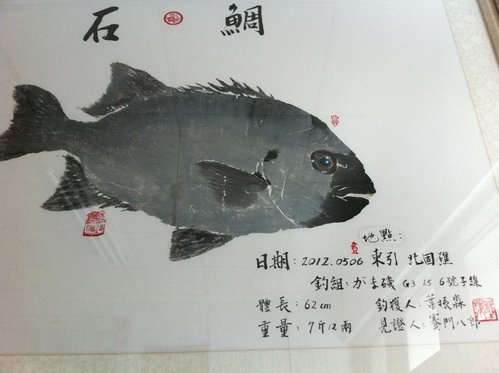 石鯛
地點：
日期：2012.0506 東引 北固礁
釣組：がま磯 G3 15 6號子線
體長：62cm 釣獲人：葉振
重量：7斤12兩 見證人：賽門八郎